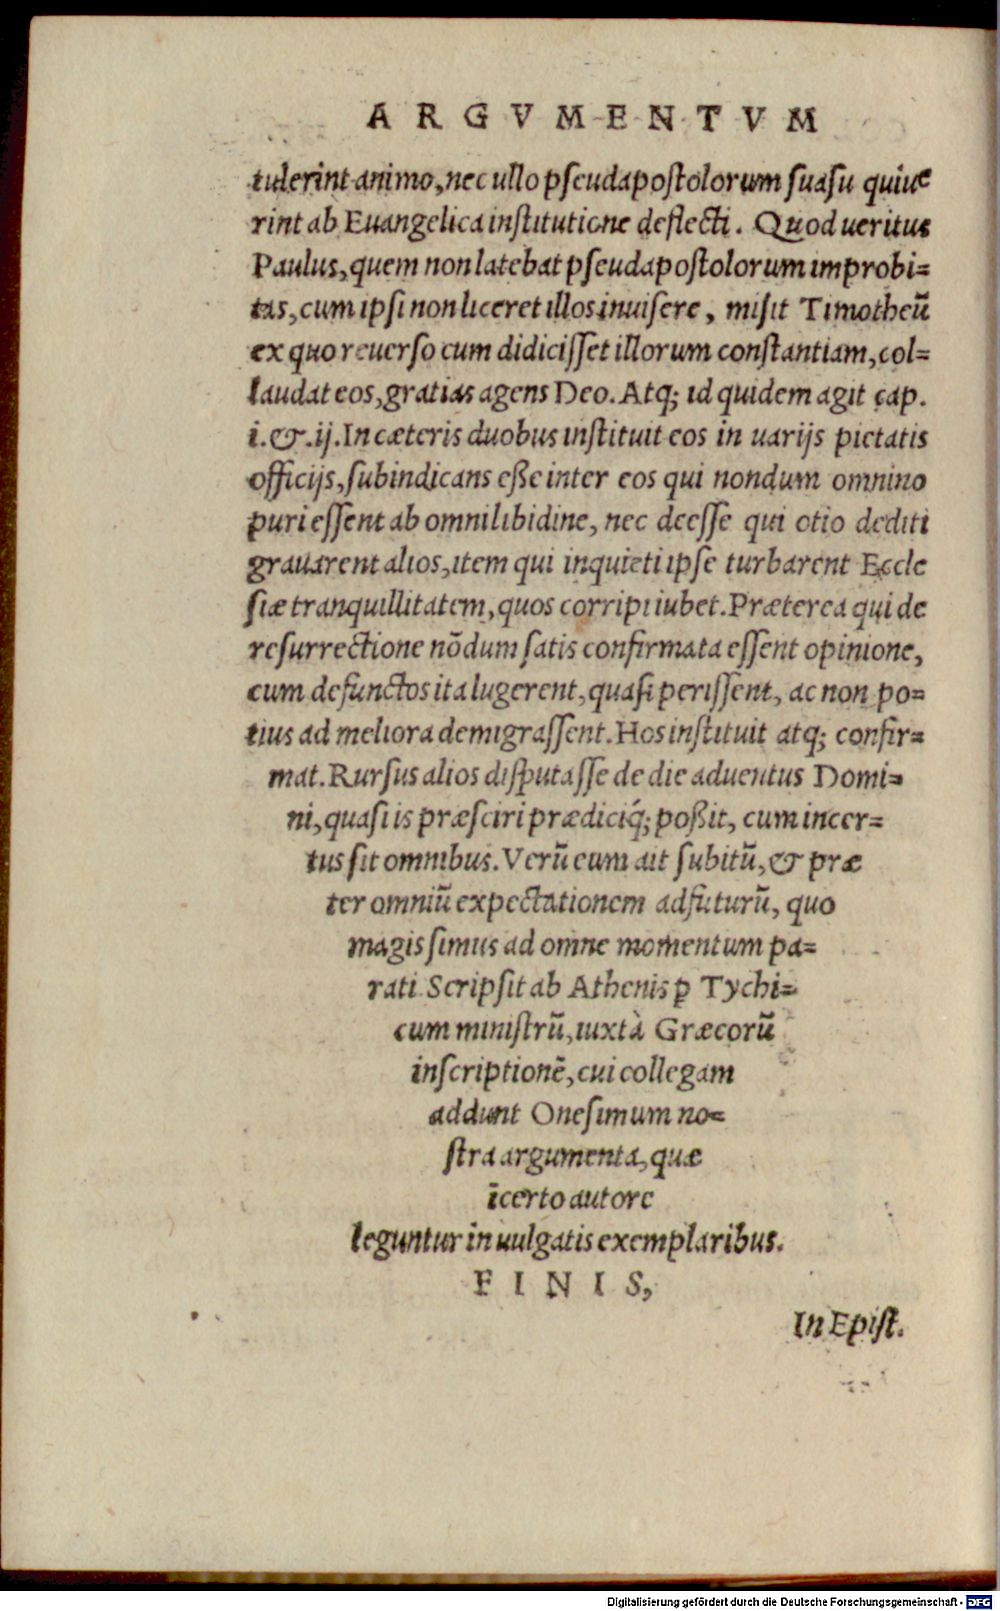 ARGVMENTVM
tulerint animo, nec ullo pseudapostolorum suasu quiue
rint ab Euangelica institutione deflecti. Quod ueritus
Paulus, quem non latebat pseudapostolorum improbi=
tas, cum ipsi non liceret illos inuisere, misit Timotheũ
ex quo reuerso cum didicisset illorum constantiam, col=
laudat eos, gratias agens Deo. Atq; id quidem agit cap.
i. & .ij. In cæteris duobus instituit eos in uarijs pietatis
officijs, subindicans eße inter eos qui nondum omnino
puri essent ab omni libidine, nec deesse qui otio dediti
grauarent alios, item qui inquieti ipse turbarent Eccle
siæ tranquillitatem, quos corripi iubet. Præterea qui de
resurrectione nõdum satis confirmata essent opinione,
cum defunctos ita lugerent, quasi perissent, ac non po=
tius ad meliora demigrassent. Hos instituit atq; confir=
mat. Rursus alios disputasse de die aduentus Domi=
ni, quasi is præsciri prædiciq́; poßit, cum incer=
tus sit omnibus. Verũ eum ait subitũ, & præ
ter omniũ expectationem adfuturũ, quo
magis simus ad omne momentum pa=
rati. Scripsit ab Athenis ꝑ Tychi=
cum ministrũ, iuxtà Græcorũ
inscriptionẽ, cui collegam
addunt Onesimum no=
stra argumenta, quæ
ĩcerto autore
leguntur in uulgatis exemplaribus.
FINIS,
In Epist.
Digitalisierung gefördert durch die Deutsche Forschungsgemeinschaft - DFG